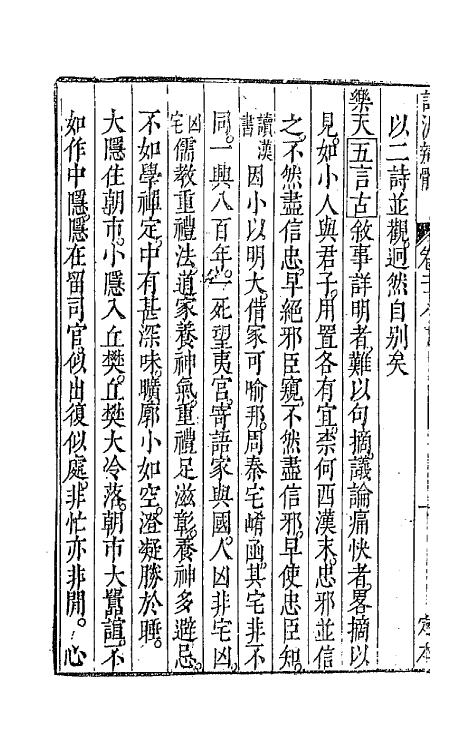 以二詩並觀迥然自别矣
樂天五言古敘事詳明者難以句摘議論痛快者畧摘以
見如小人與君子用置各有宜柰何西漢末忠邪並信
之不然盡信忠早絕邪臣窺不然盡信邪早使忠臣知
讀漢書因小以明大借家可喻邦周秦宅崤函其宅非不
同一興八百年一死望夷宫寄語家與國人凶非宅凶
凶宅儒教重禮法道家養神氣重禮足滋彰養神多避忌
不如學禪定中有甚深味曠廓小如空澄凝勝於睡
大隱住朝市小隱入丘樊丘樊太冷落朝市大囂諠不
如作中隱隱在留司官似出復似處非忙亦非閒心